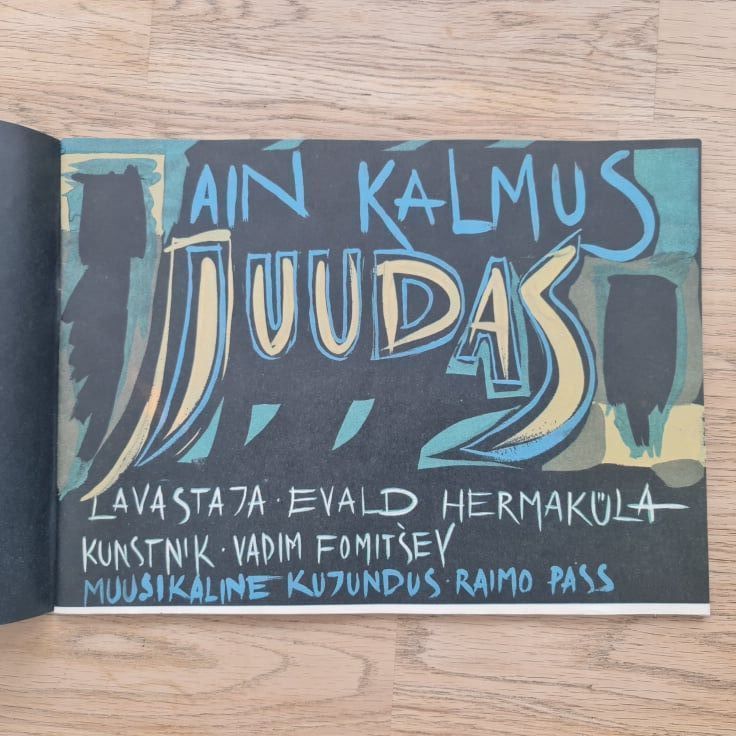 AIN KALMUS
JUUDAS
LAVASTAJA · EVALD HERMAKÜLA
KUNSTNIK · VADIM FOMITŠEV
MUUSIKALINE KUJUNDUS · RAIMO PASS